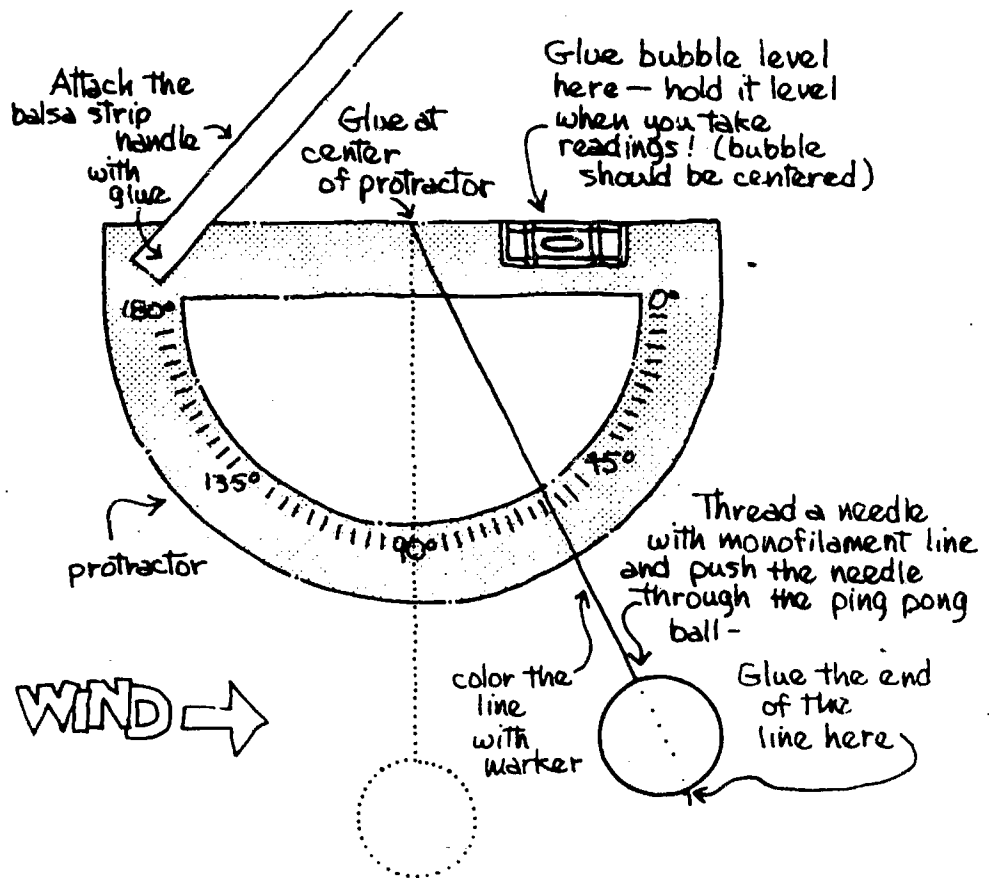 Attach the
balsa strip
handle
with
glue
Glue at
center
of protractor
Glue bubble level
here — hold it level
when you take
readings! (bubble
should be centered)
180°
0°
135°
45°
90°
protractor
Thread a needle
with monofilament line
and push the needle
through the ping pong
ball -
WIND
color the
line
with
marker
Glue the end
of the
line here